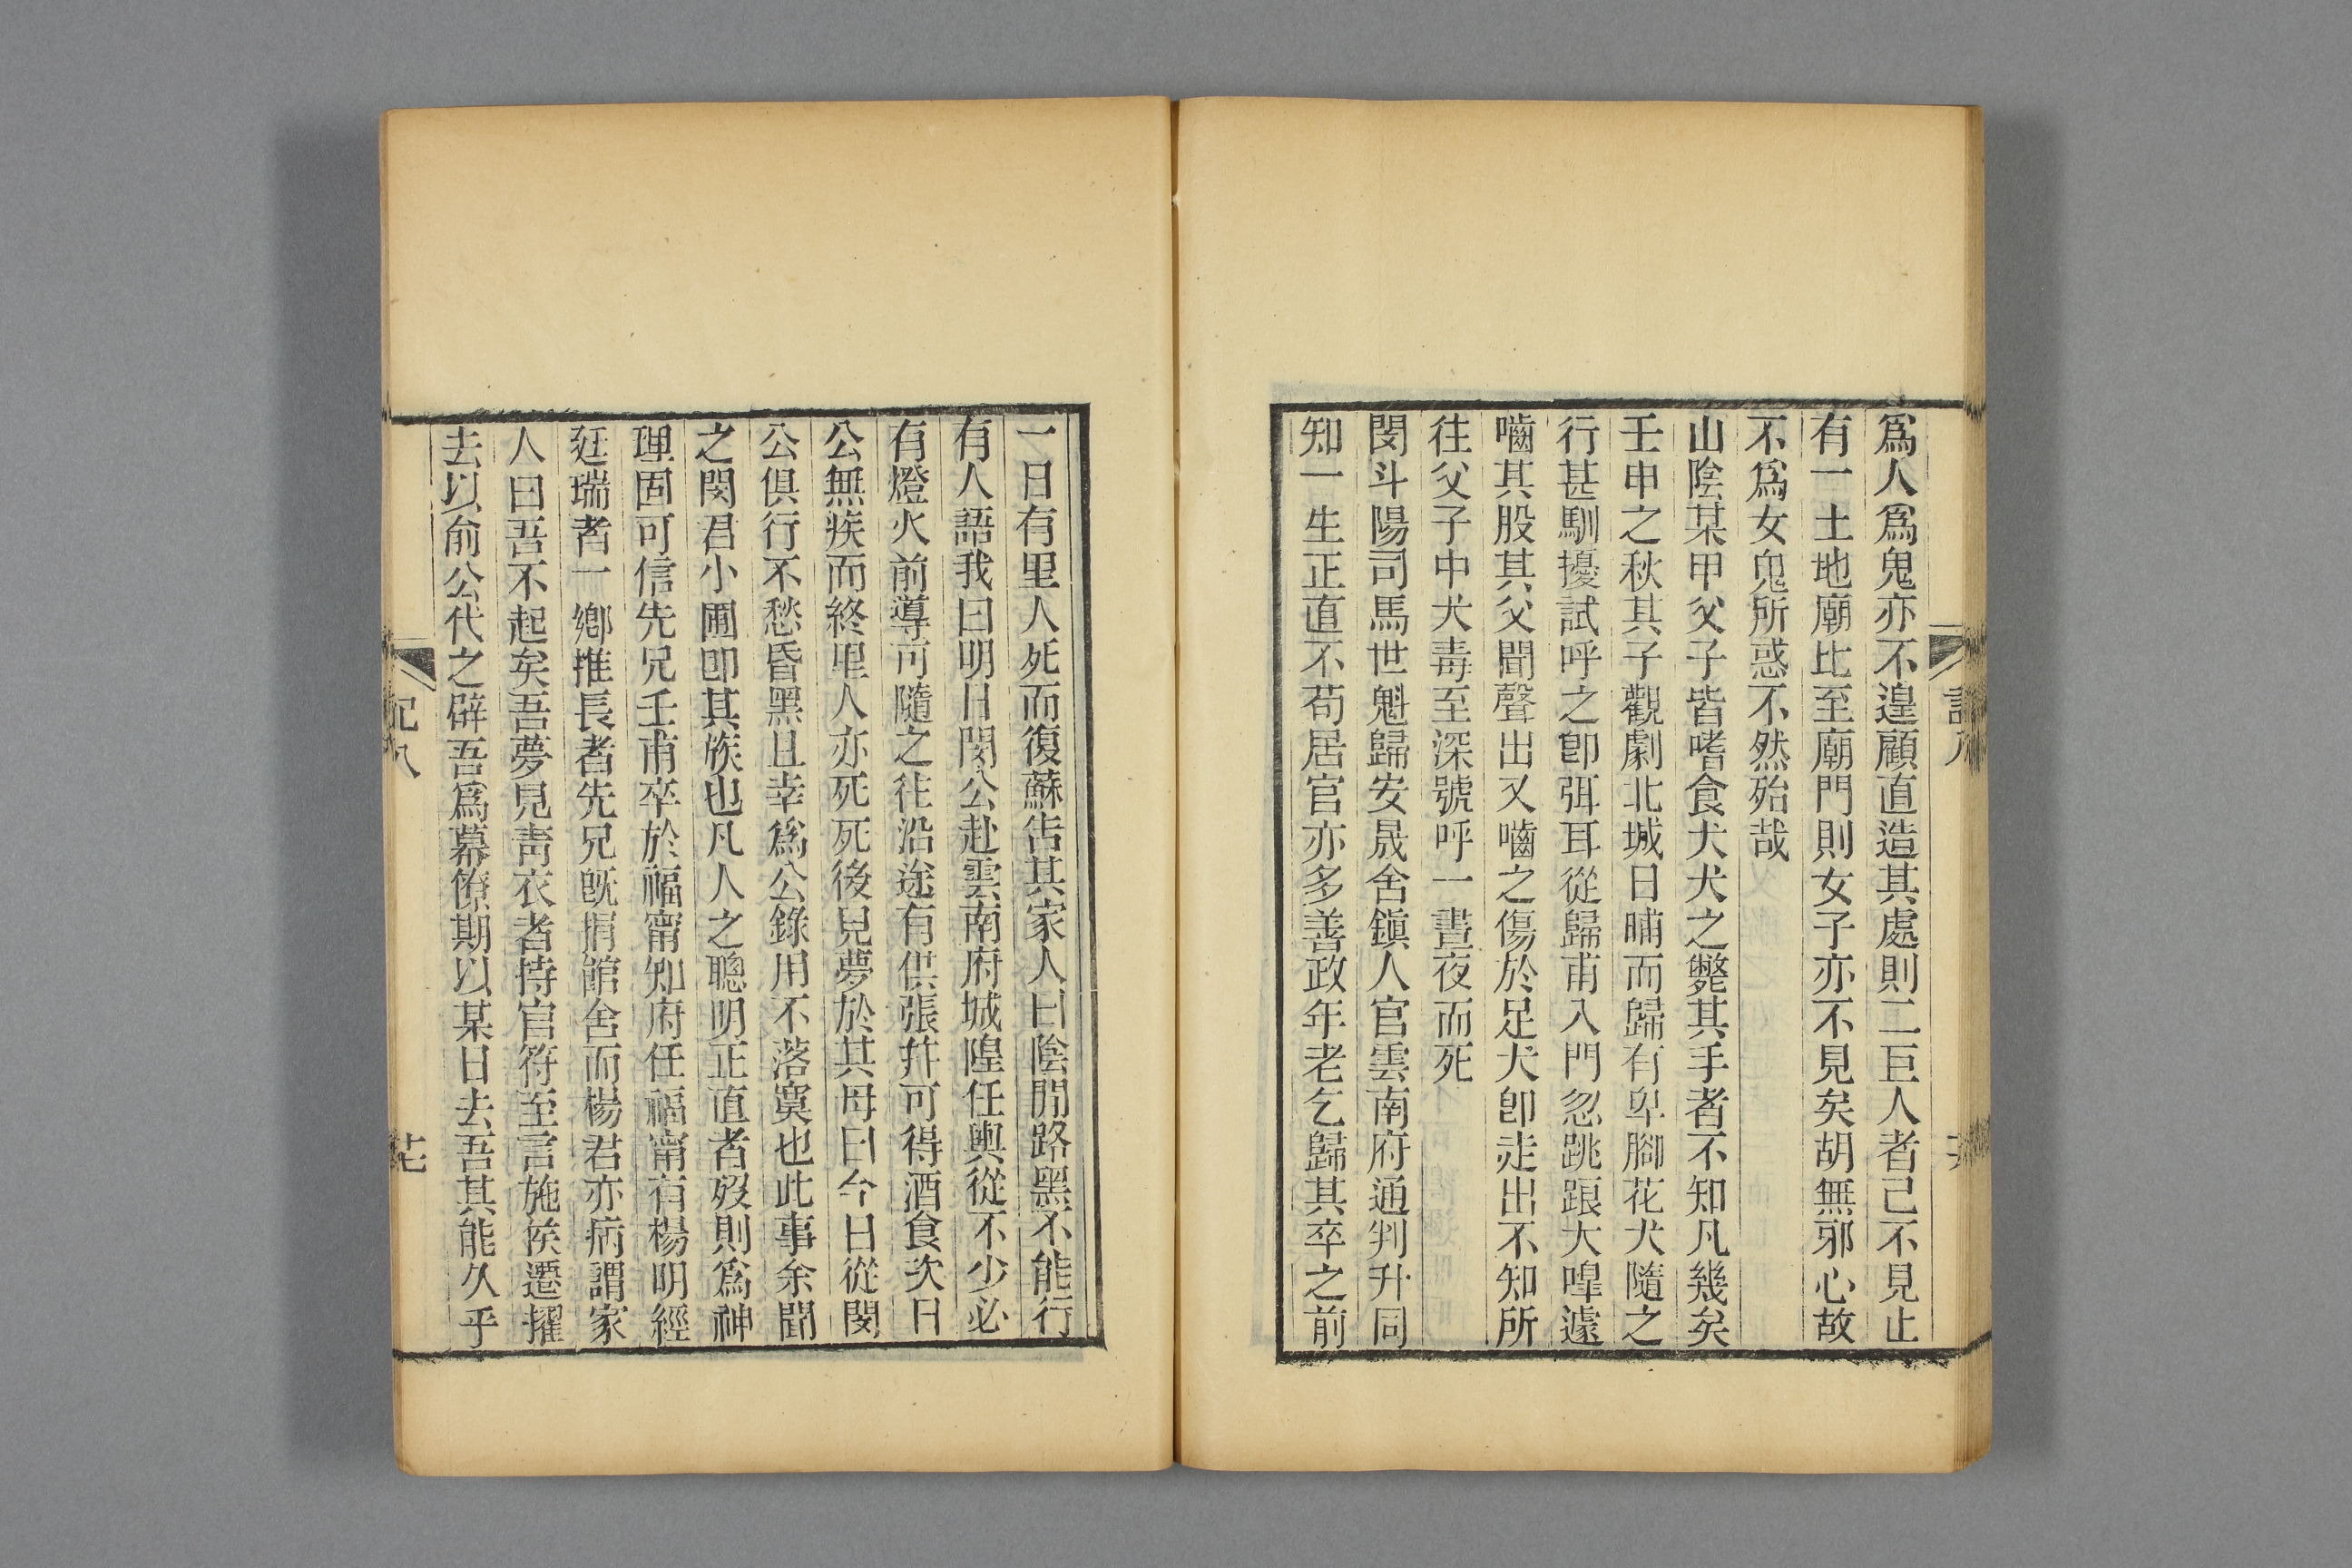 爲人爲鬼亦不遑顧直造其處則二巨人者已不見止
有一土地廟比至廟門則女子亦不見矣胡無邪心故
不爲女鬼所惑不然殆哉
山陰某甲父子皆嗜食犬犬之斃其手者不知凡幾矣
壬申之秋其子觀劇北城日晡而歸有卑腳花犬隨之
行甚馴擾試呼之卽弭耳從歸甫入門忽跳踉大嘷遽
嚙其股其父聞聲出又嚙之傷於足犬卽走出不知所
往父子中犬毒至深號呼一晝夜而死
閔斗陽司馬世魁歸安晟舍鎭人官雲南府通判升同
知一生正直不苟居官亦多善政年老乞歸其卒之前
一日有里人死而復蘇告其家人曰陰閒路黑不能行
有人語我曰明日閔公赴雲南府城隍任輿從不少必
有燈火前導可隨之往沿途有供張幷可得酒食次日
公無疾而終里人亦死死後見夢於其母曰今日從閔
公俱行不愁昏黑且幸爲公錄用不落寞也此事余聞
之閔君小圃卽其族也凡人之聰明正直者歿則爲神
理固可信先兄壬甫卒於福甯知府任福甯有楊明經
廷瑞者一鄉推長者先兄旣捐館舍而楊君亦病謂家
人曰吾不起矣吾夢見靑衣者持官符至言施侯遷擢
去以俞公代之辟吾爲幕僚期以某日去吾其能久乎
記八